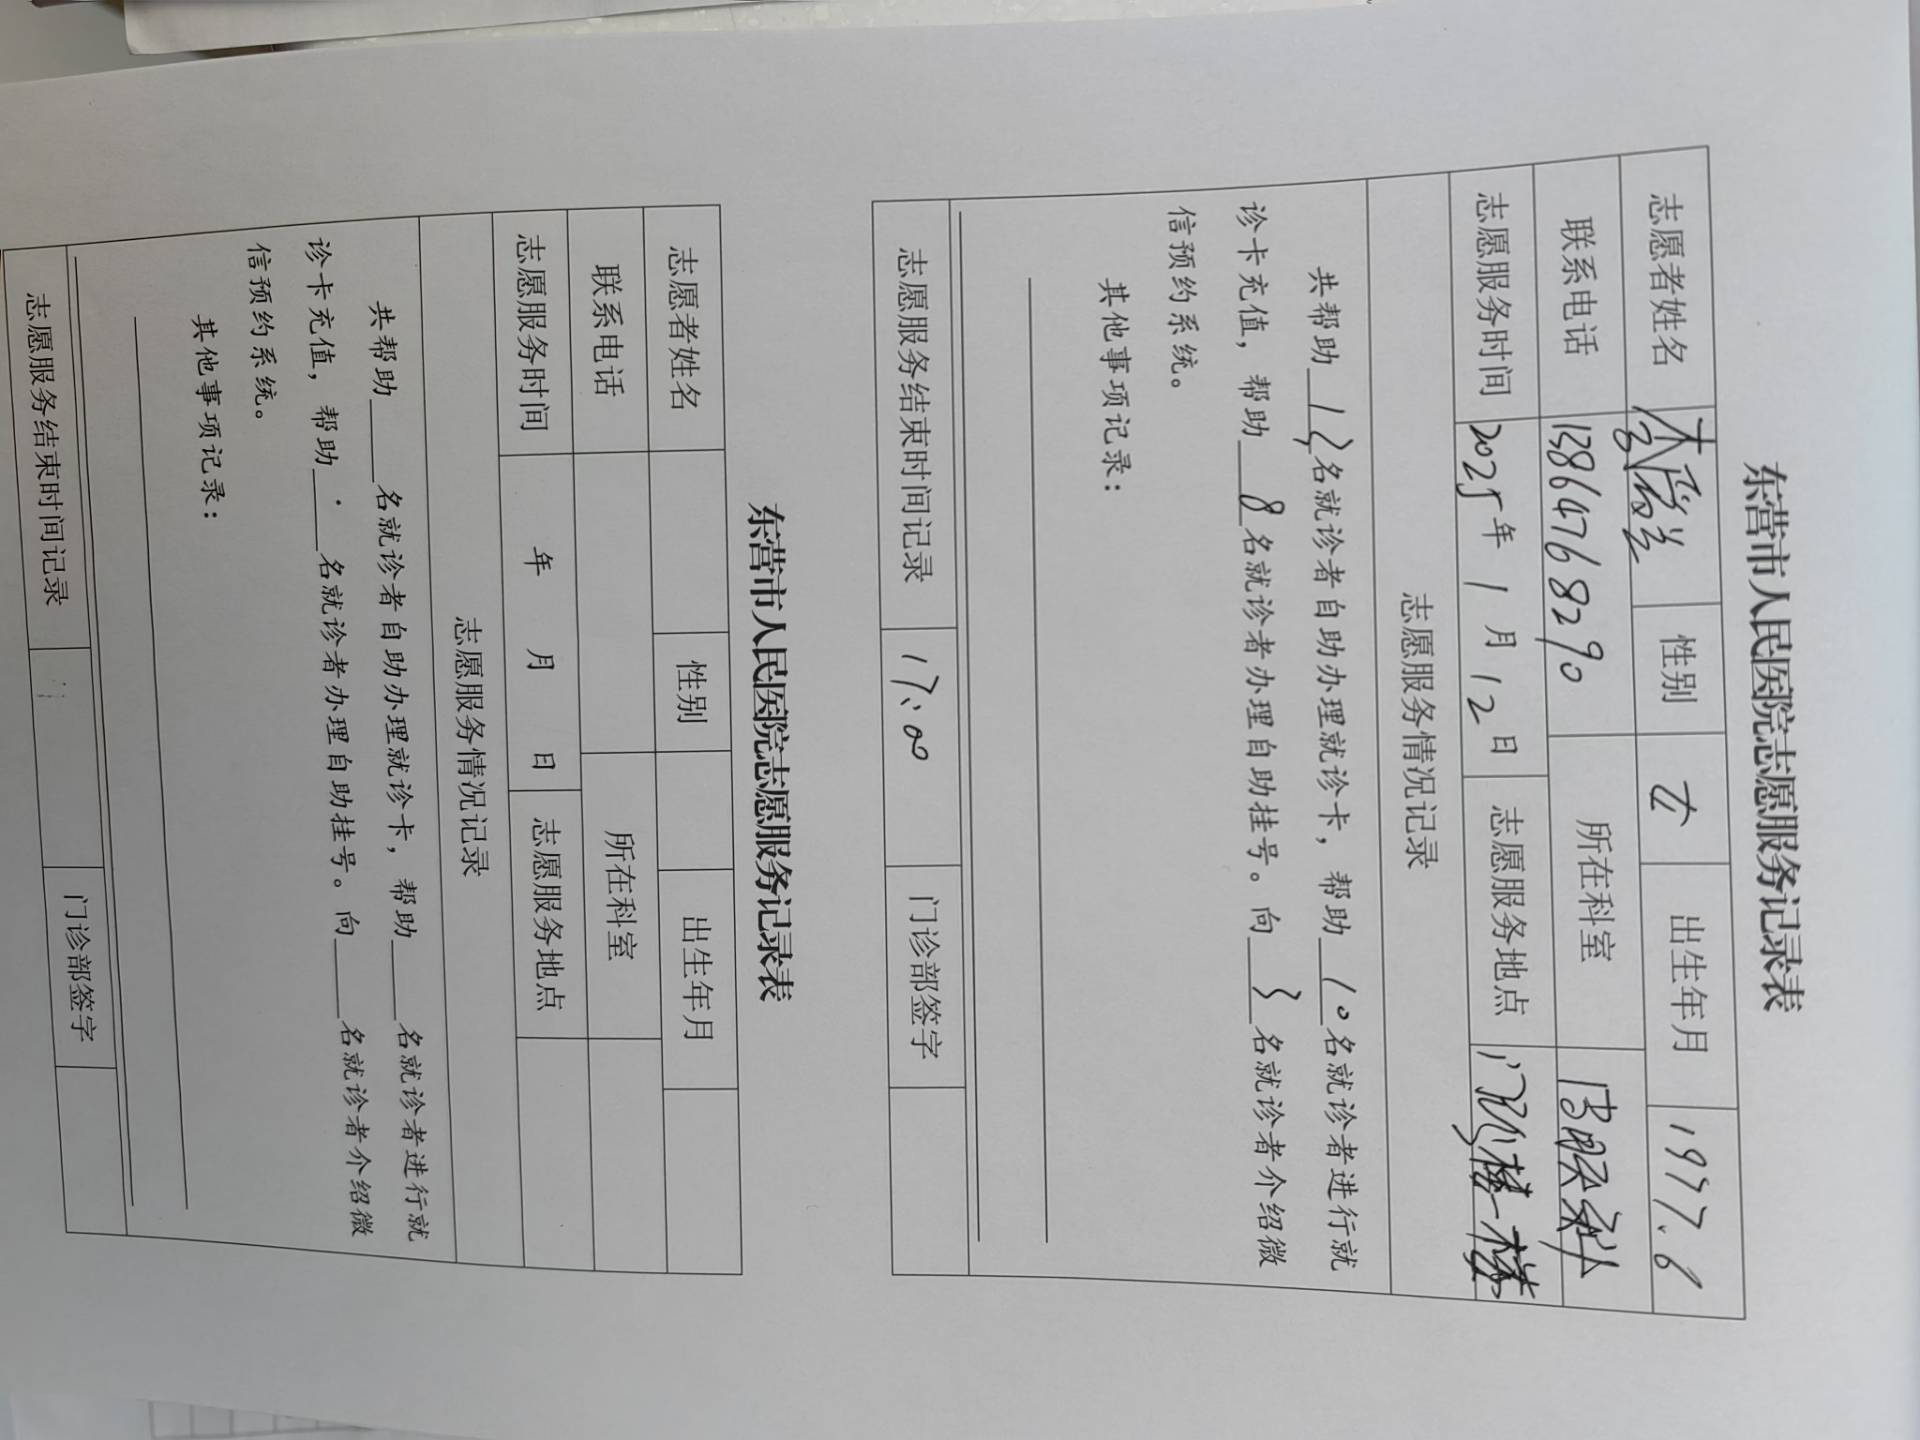 东营市人民医院志愿服务记录表
志愿者姓名 李 兰 性别 女 出生年月 1977.6
联系电话 13864768290 所在科室 科
志愿服务时间 2025年1月12日 志愿服务地点 门诊楼一楼
志愿服务情况记录
共帮助12名就诊者自助办理就诊卡，帮助10名就诊者进行就
诊卡充值，帮助8名就诊者办理自助挂号。向3名就诊者介绍微
信预约系统。
其他事项记录：
志愿服务结束时间记录 17:00 门诊部签字
东营市人民医院志愿服务记录表
志愿者姓名 性别 出生年月
联系电话 所在科室
志愿服务时间 年 月 日 志愿服务地点
志愿服务情况记录
共帮助____名就诊者自助办理就诊卡，帮助____名就诊者进行就
诊卡充值，帮助____名就诊者办理自助挂号。向____名就诊者介绍微
信预约系统。
其他事项记录：
志愿服务结束时间记录 门诊部签字